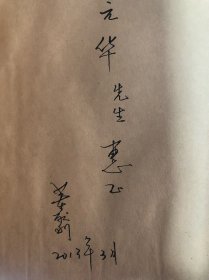 元华先生惠正
2013年3月